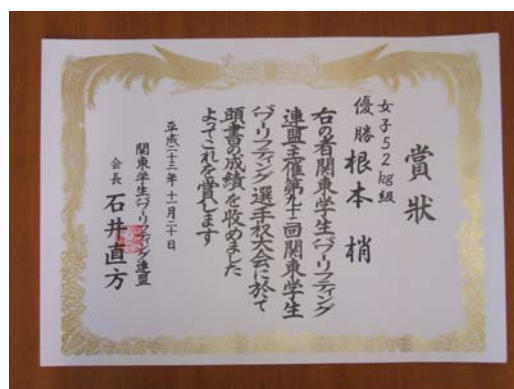 賞狀
女子52kg級
優勝 根本 梢
右の者関東学生パワーリフティング
連盟主催第九十二回関東学生
パワーリフティング選手権大会に於て
頭書の成績を収めました
よってこれを賞します
平成二十三年十一月二十日
関東学生パワーリフティング連盟
会長 石井直方